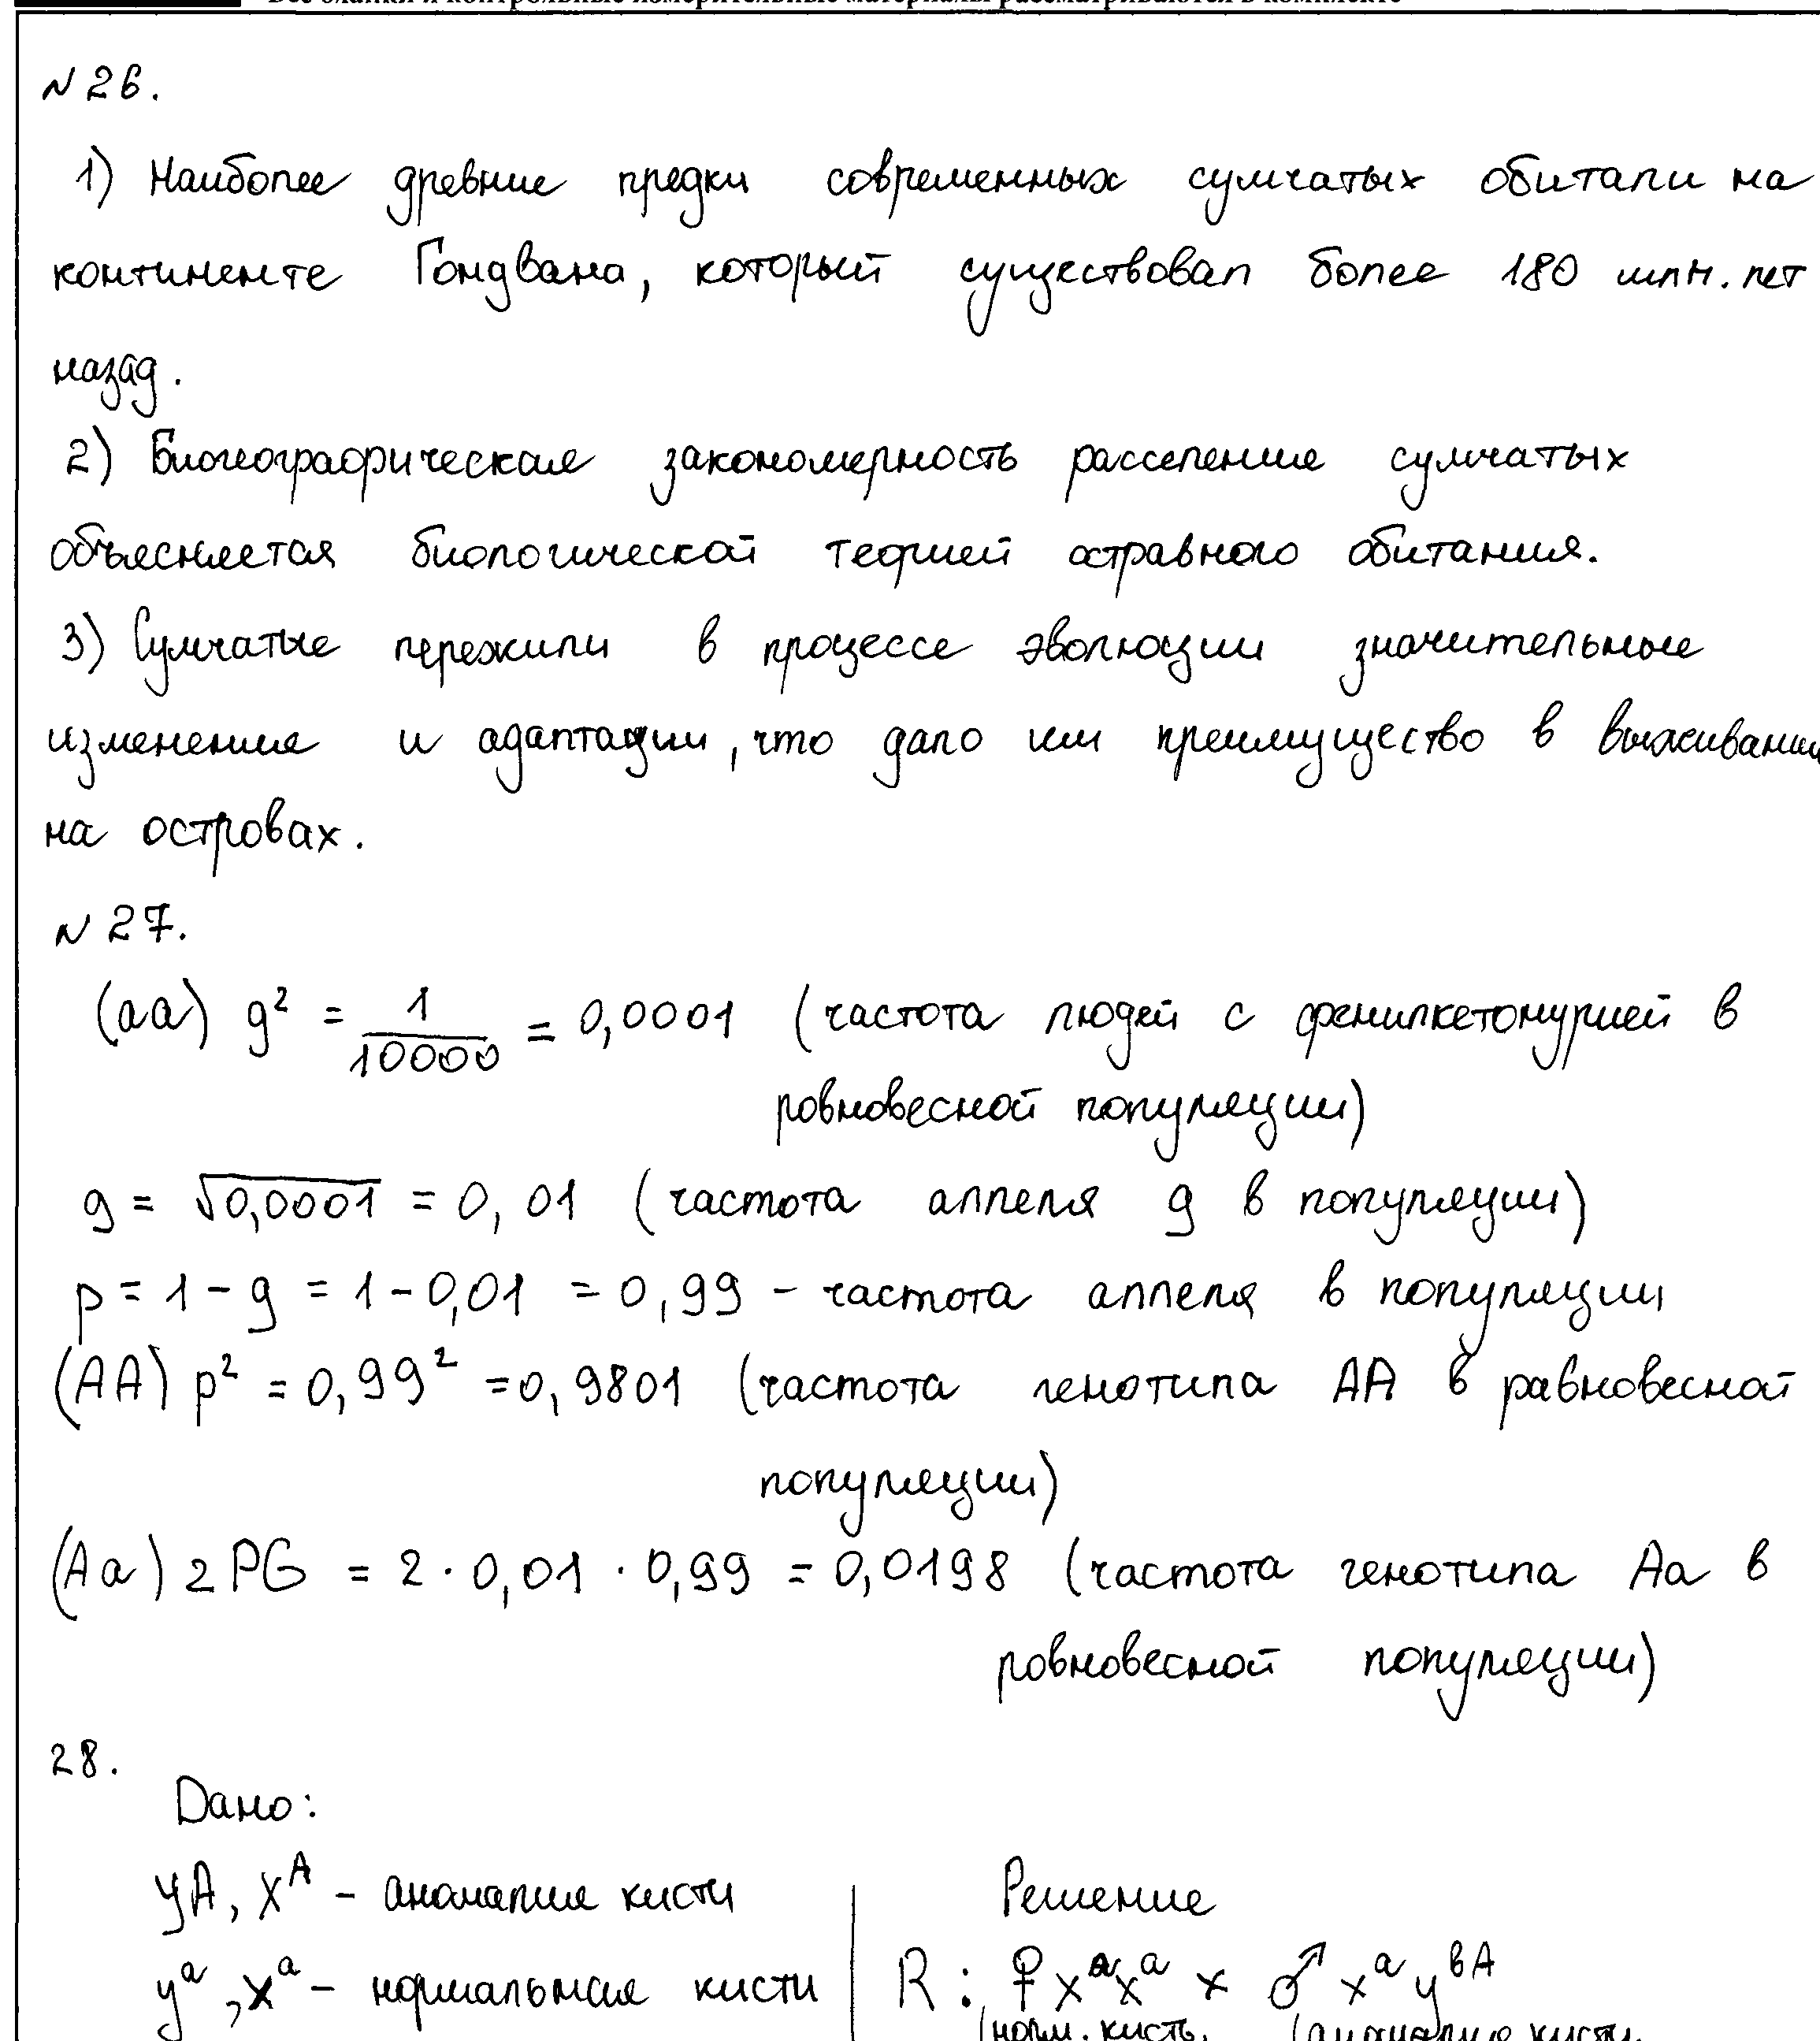 Все бланки и контрольные измерительные материалы рассматриваются в комплекте
№ 26.
1) Наиболее древние предки современных сумчатых обитали на
континенте Гондвана, который существовал более 180 млн. лет
назад.
2) Биогеографическая закономерность расселения сумчатых
объясняется биологической теорией остравного обитания.
3) Сумчатые пережили в процессе эволюции значительные
изменения и адаптации, что дало им преимущество в выживании
на островах.
№ 27.
(аа) g² = 1/10000 = 0,0001 (частота людей с фенилкетонурией в
ровновесной популяции)
g = √0,0001 = 0,01 (частота аллеля g в популяции)
p = 1 - g = 1 - 0,01 = 0,99 - частота аллеля в популяции
(АА) p² = 0,99² = 0,9801 (частота генотипа АА в равновесной
популяции)
(Аа) 2PG = 2 · 0,01 · 0,99 = 0,0198 (частота генотипа Аа в
ровновесной популяции)
28.
Дано:
yA, x^A - аномалия кисти
Решение
y^a, x^a - нормальная кисти
R: ♀ x^a x^a × ♂ x^a y^bA
(норм. кисть, (аномалия кисти,